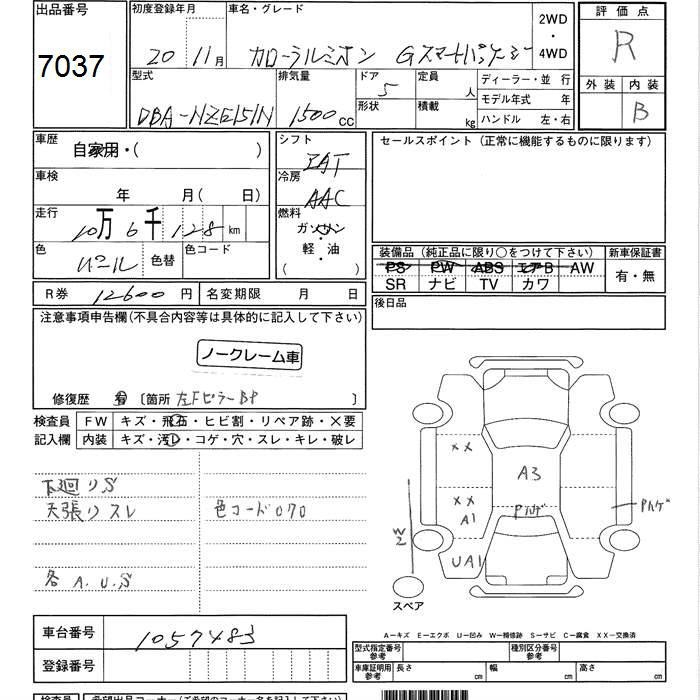 出品番号 初度登録年月 車名・グレード 2WD・4WD 評価点
7037 20 11月 カローラルミオン Gスマートパッケージ R
型式 排気量 ドア 定員 ディーラー・並行 外装 内装
DBA-NZE151N 1500cc 5 人 モデル年式 年 B
形状 積載 kg ハンドル 左・右
車歴 自家用・( ) シフト IAT セールスポイント(正常に機能するものに限ります)
車検 年 月(日) 冷房 AAC
走行 10万6千128km 燃料 ガソリン
色 パール 色替 色コード 軽・油 装備品(純正品に限り○をつけて下さい) 新車保証書
( ) PS PW ABS エアB AW 有・無
SR ナビ TV カワ
R券 12600円 名変期限 月 日 後日品
注意事項申告欄(不具合内容等は具体的に記入して下さい)
ノークレーム車
修復歴 有 〔箇所 左Fピラー BP 〕
検査員 FW キズ・飛石・ヒビ割・リペア跡・×要
記入欄 内装 キズ・汚レ・コゲ・穴・スレ・キレ・破レ
下廻りS
天張りスレ 色コード070
各A.U.S
XX A3
XX A1 Pルゲ Pルゲ
W2 UA1
スペア
A-キズ E-エクボ U-凹み W-補修跡 S-サビ C-腐食 XX-交換済
車台番号 1057483 型式指定番号 参考 種別区分番号 参考
登録番号 車庫証明用 参考 長さ cm 幅 cm 高さ cm
検査員 希望出品コーナー(ご希望のコーナー名をご記入下さい)